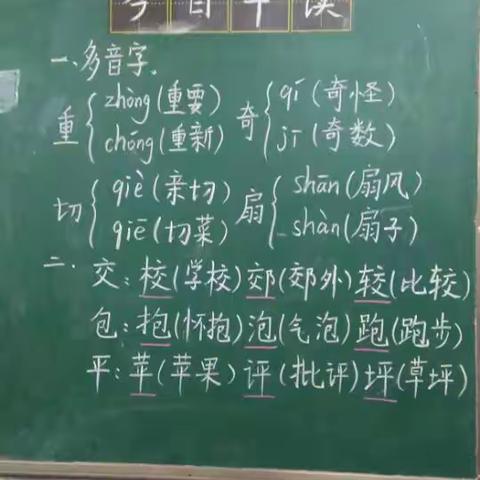 今日早读
一、多音字.
重 zhòng(重要) 奇 qí(奇怪)
chóng(重新) jī(奇数)
切 qiè(亲切) 扇 shān(扇风)
qiē(切菜) shàn(扇子)
二. 交:校(学校)郊(郊外)较(比较)
包:抱(怀抱)泡(气泡)跑(跑步)
平:苹(苹果)评(批评)坪(草坪)